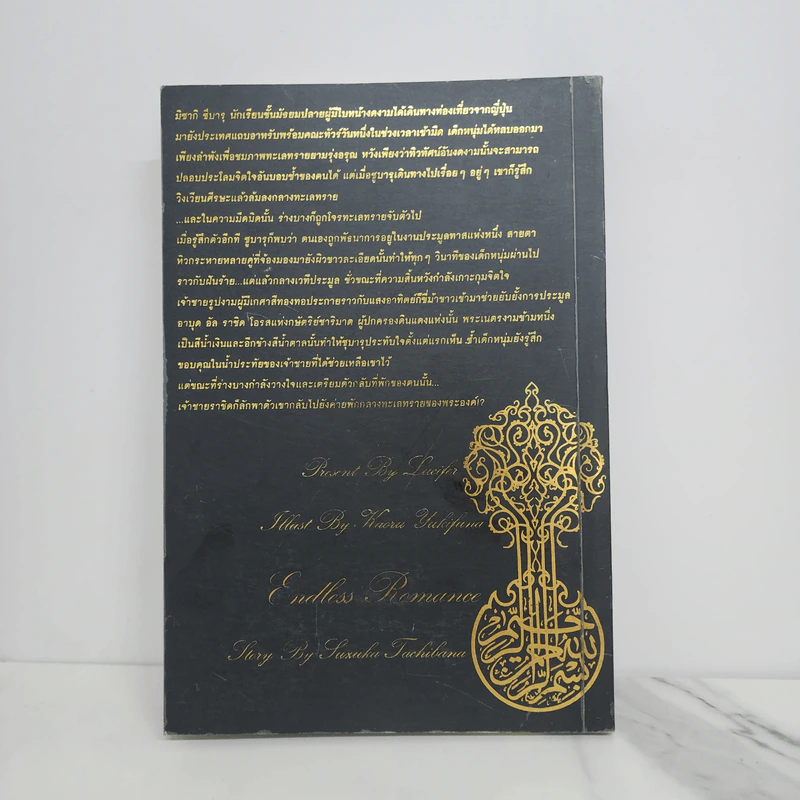 มิซากิ ซึบารุ นักเรียนชั้นมัธยมปลายผู้มีใบหน้างดงามได้เดินทางท่องเที่ยวจากญี่ปุ่น
มายังประเทศแถบอาหรับพร้อมคณะทัวร์วันหนึ่งในช่วงเวลาเช้ามืด เด็กหนุ่มได้หลบออกมา
เพียงลำพังเพื่อชมภาพทะเลทรายยามรุ่งอรุณ หวังเพียงว่าทิวทัศน์อันงดงามนั้นจะสามารถ
ปลอบประโลมจิตใจอันบอบช้ำของตนได้ แต่เมื่อซูบารุเดินทางไปเรื่อยๆ อยู่ๆ เขาก็รู้สึก
วิงเวียนศีรษะแล้วล้มลงกลางทะเลทราย
...และในความมืดมิดนั้น ร่างบางก็ถูกโจรทะเลทรายจับตัวไป
เมื่อรู้สึกตัวอีกที ซูบารุก็พบว่า ตนเองถูกพันธนาการอยู่ในงานประมูลทาสแห่งหนึ่ง สายตา
หิวกระหายหลายคู่ที่จ้องมองมายังผิวขาวละเอียดนั้นทำให้ทุกๆ วินาทีของเด็กหนุ่มผ่านไป
ราวกับฝันร้าย...แต่แล้วกลางเวทีประมูล ชั่วขณะที่ความสิ้นหวังกำลังเกาะกุมจิตใจ
เจ้าชายรูปงามผู้มีเกศาสีทองทอประกายราวกับแสงอาทิตย์ก็ขี่ม้าขาวเข้ามาช่วยยับยั้งการประมูล
อาบุด อัล ราชิด โอรสแห่งกษัตริย์ชาริมาด ผู้ปกครองดินแดงแห่งนั้น พระเนตรงามข้ามหนึ่ง
เป็นสีน้ำเงินและอีกข้างสีน้ำตาลนั้นทำให้ซูบารุประทับใจตั้งแต่แรกเห็น ซ้ำเด็กหนุ่มยังรู้สึก
ขอบคุณในน้ำประทัยของเจ้าชายที่ได้ช่วยเหลือเขาไว้
แต่ขณะที่ร่างบางกำลังวางใจและเตรียมตัวกลับที่พักของตนนั้น...
เจ้าชายราชิดก็ลักพาตัวเขากลับไปยังค่ายพักกลางทะเลทรายของพระองค์!?
Present By Lucifer
Illust By Kaoru Yukifuna
Endless Romance
Story By Suzuka Tachibana